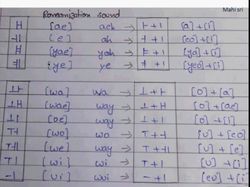 Mahi sri
Romanization sound
ㅐ [ae] aeh → ㅏ+ㅣ [a]+[i]
ㅔ [e] eh → ㅓ+ㅣ [eo]+[i]
ㅒ [yae] yah → ㅑ+ㅣ [ya]+[i]
ㅖ [ye] ye → ㅕ+ㅣ [yeo]+[i
ㅘ [wa] wa → ㅗ+ㅏ [o]+[a]
ㅙ [wae] way → ㅗ+ㅐ [o]+[ae
ㅚ [oe] way → ㅗ+ㅣ [o]+[i]
ㅝ [wo] wo → ㅜ+ㅓ [u]+[eo
ㅞ [we] way → ㅜ+ㅔ [u]+[e]
ㅟ [wi] wi → ㅜ+ㅣ [u]+[i]
ㅢ [ui] wui → ㅡ+ㅣ [eu]+[i